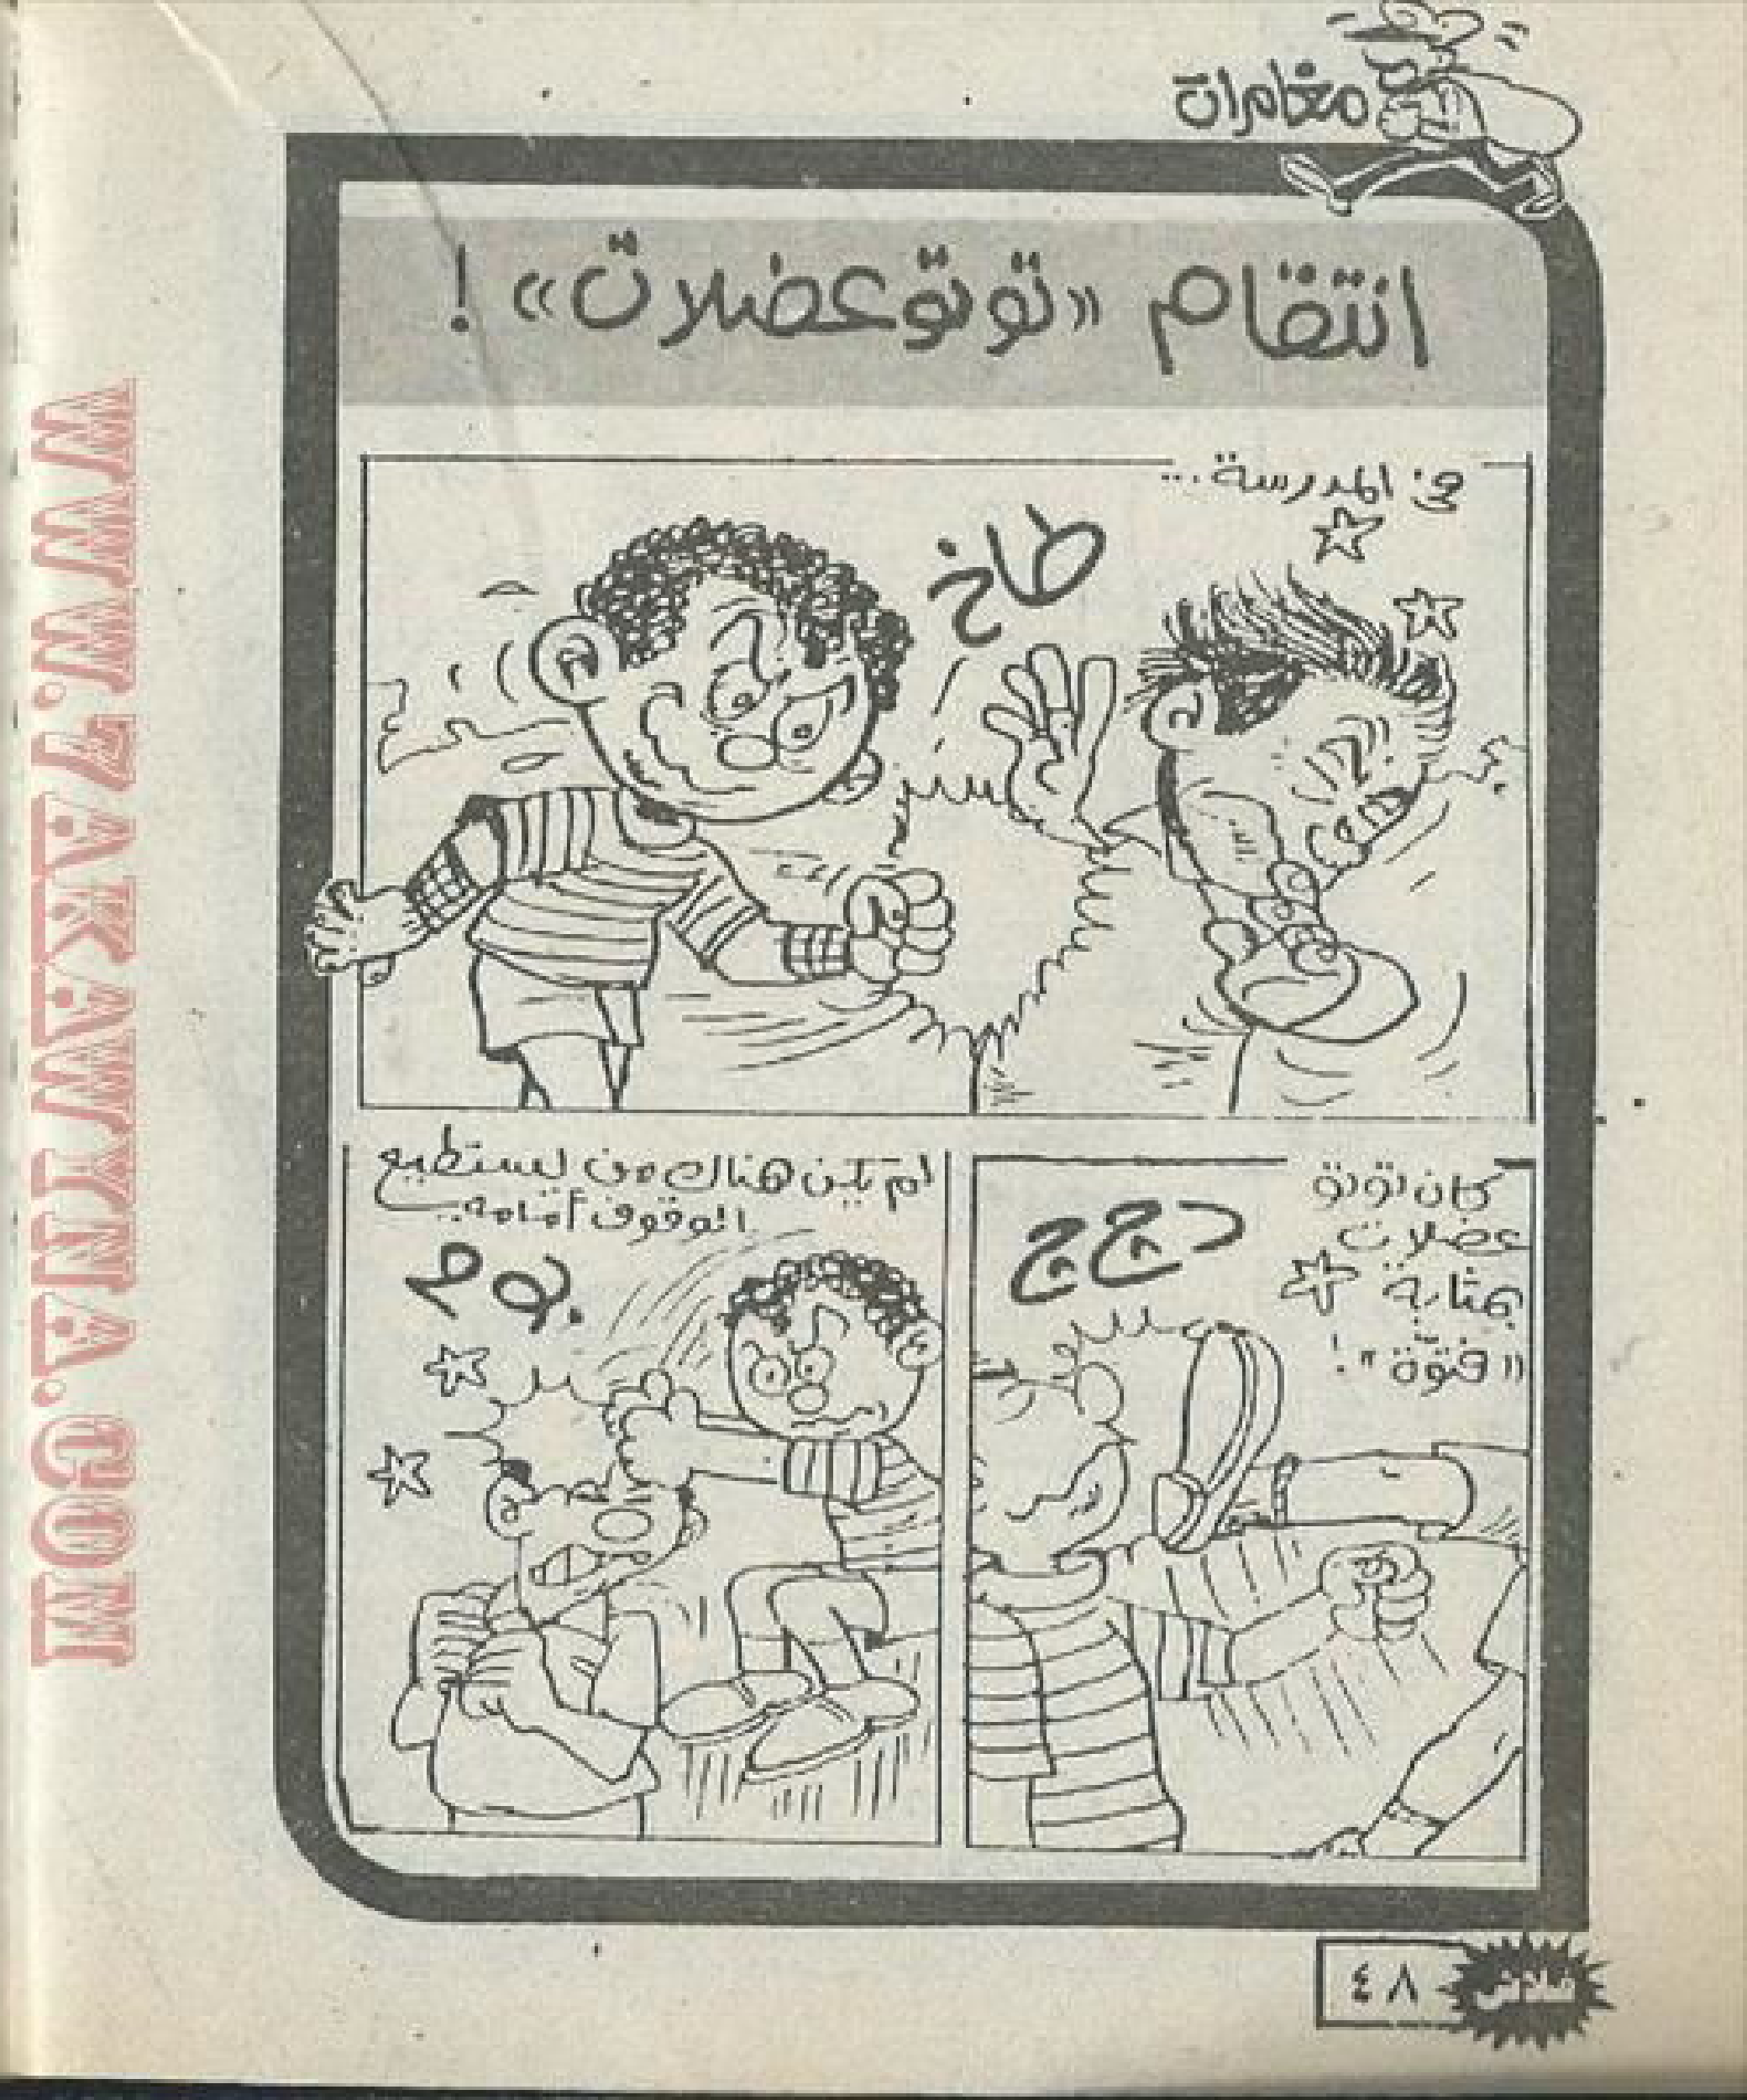 مغامرات
انتقام «توتو عضلات» !
في المدرسة...
طاخ
كان توتو
عضلات
بمثابة
"فتوّة" !
دججج
لم يكن هناك من يستطيع
الوقوف أمامه..
بوم
٤٨
WWW.7AKAWINA.COM